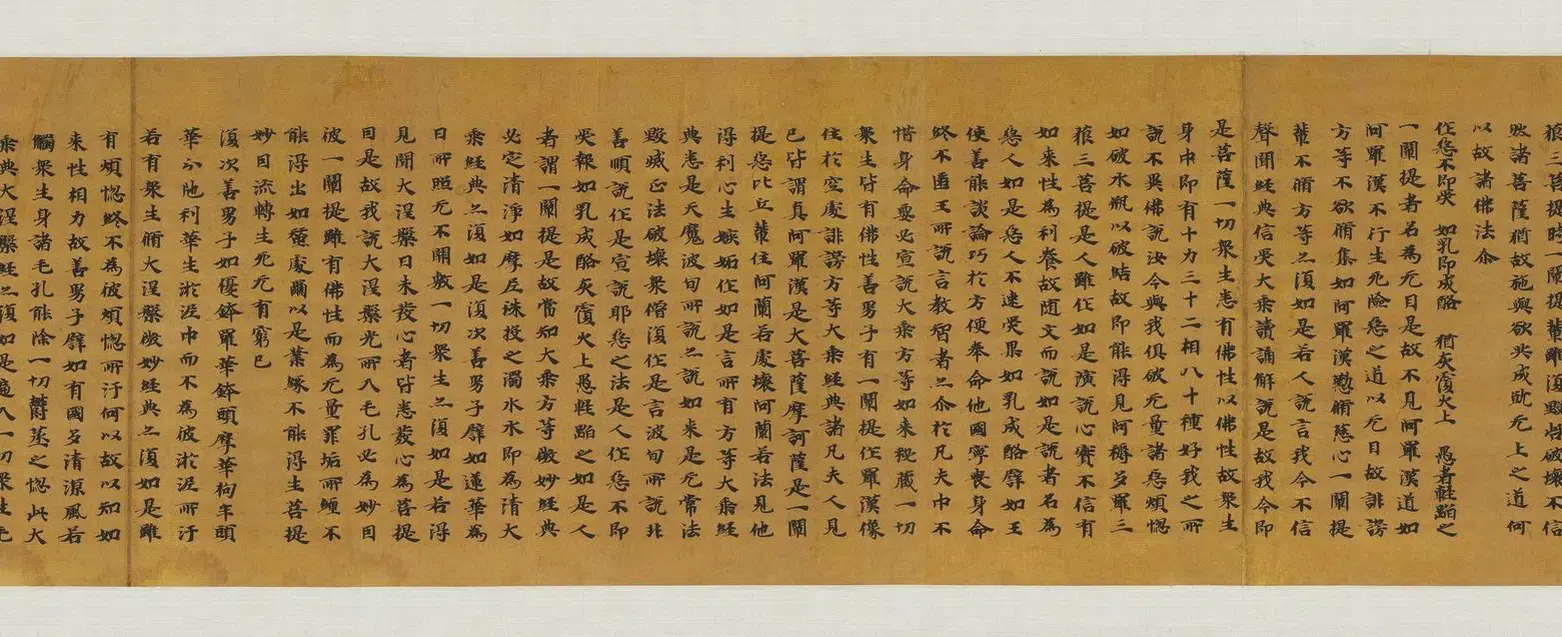 藐三菩提時一闡提輩雖復毀呰破壞不信
然諸菩薩猶故施與欲共成就无上之道何
以故諸佛法尒
作惡不即受　如乳即成酪　猶灰覆火上　愚者輕蹈之
一闡提者名為无目是故不見阿羅漢道如
阿羅漢不行生死險惡之道以无目故誹謗
方等不欲脩集如阿羅漢懃脩慈心一闡提
輩不脩方等亦復如是若人說言我今不信
聲聞經典信受大乘讀誦解說是故我今即
是菩薩一切眾生悉有佛性以佛性故眾生
身中即有十力三十二相八十種好我之所
說不異佛說汝今與我俱破无量諸惡煩惱
如破水瓶以破結故即能得見阿耨多羅三
藐三菩提是人雖作如是演說心實不信有
如來性為利養故随文而說如是說者名為
惡人如是惡人不速受果如乳成酪譬如王
使善能談論巧於方便奉命他國寧喪身命
終不匿王所說言教智者亦尒於凡夫中不
惜身命要必宣說大乘方等如來秘藏一切
眾生皆有佛性善男子有一闡提作羅漢像
住於空處誹謗方等大乘經典諸凡夫人見
已皆謂真阿羅漢是大菩薩摩訶薩是一闡
提惡比丘輩住阿蘭若處壞阿蘭若法見他
得利心生嫉妬作如是言所有方等大乘經
典悉是天魔波旬所說亦說如來是无常法
毀滅正法破壞眾僧復作是言波旬所說非
善順說作是宣說耶惡之法是人作惡不即
受報如乳成酪灰覆火上愚輕蹈之如是人
者謂一闡提是故當知大乘方等微妙經典
必定清淨如摩尼珠投之濁水水即為清大
乘經典亦復如是復次善男子譬如蓮華為
日所照无不開敷一切眾生亦復如是若得
見聞大涅槃日未發心者皆悉發心為菩提
因是故我說大涅槃光所入毛孔必為妙因
彼一闡提雖有佛性而為无量罪垢所纏不
能得出如蚕處繭以是業緣不能得生菩提
妙因流轉生死无有窮已
復次善男子如優鉢羅華鉢頭摩華拘牟頭
華分陁利華生淤泥中而不為彼淤泥所汙
若有眾生脩大涅槃微妙經典亦復如是雖
有煩惱終不為彼煩惱所汙何以故以知如
來性相力故善男子譬如有國多清涼風若
觸眾生身諸毛孔能除一切欝蒸之惱此大
乘典大涅槃經亦復如是遍入一切眾生毛